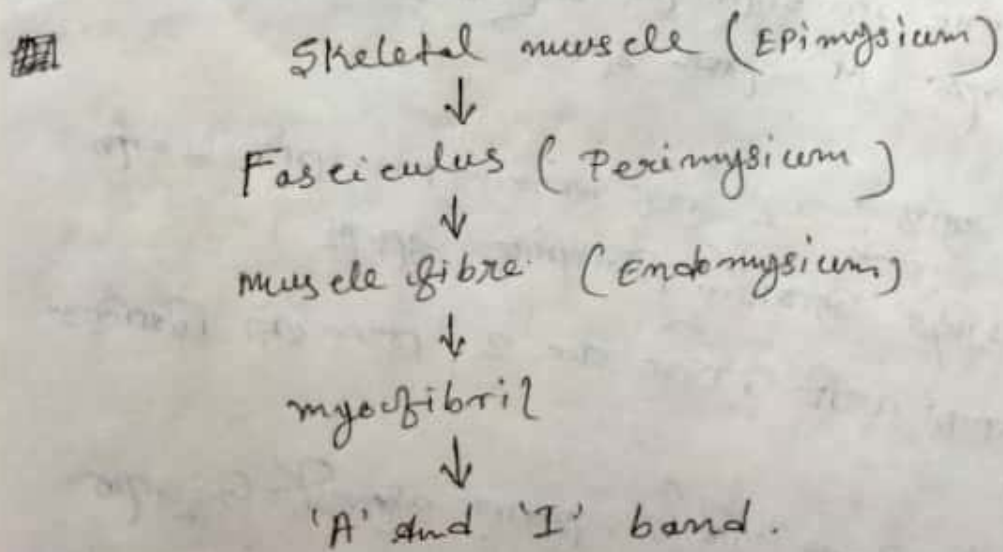 Skeletal muscle (Epimysium)
↓
Fasciculus (Perimysium)
↓
muscle fibre (Endomysium)
↓
myofibril
↓
'A' and 'I' band.